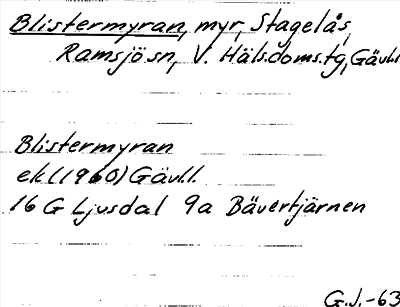 Blistermyran, myr, Stagelås,
Ramsjö sn, V. Häls.doms.tg, Gävl.l
Blistermyran
ek (1960) Gävl.l.
16 G Ljusdal 9a Bävertjärnen
G.J.-63